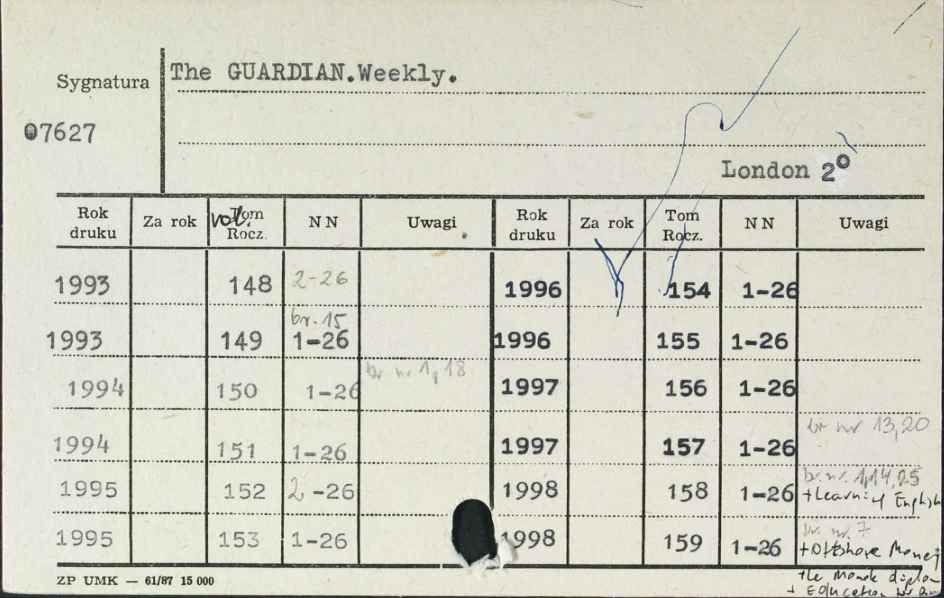 Sygnatura The GUARDIAN.Weekly.
07627
London 2°
Rok druku Za rok vol. Tom Rocz. NN Uwagi Rok druku Za rok Tom Rocz. NN Uwagi
1993 148 2-26 1996 154 1-26
br. 15
1993 149 1-26 1996 155 1-26
br nr 1, 18
1994 150 1-26 1997 156 1-26
br nr 13,20
1994 151 1-26 1997 157 1-26
br. nr. 1,14,25
1995 152 2-26 1998 158 1-26 + Learning English
br. nr. 7
1995 153 1-26 1998 159 1-26 + Offshore Money
+ Le Monde
ZP UMK — 61/87 15 000 + Education